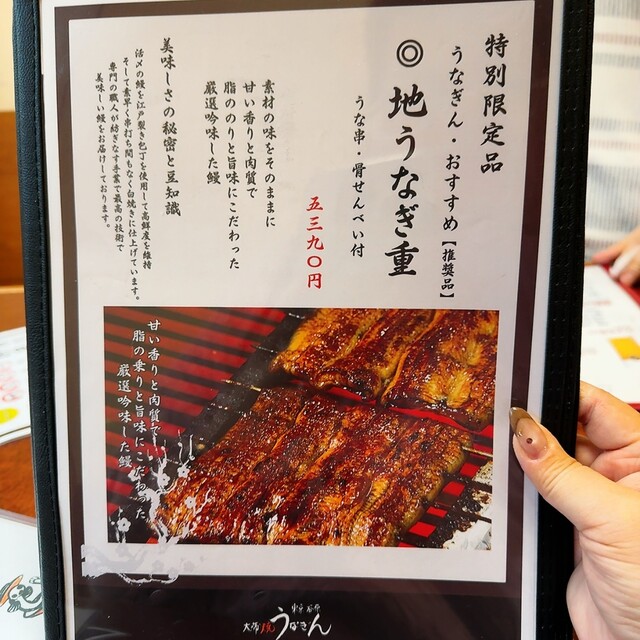 特別限定品
うなぎん・おすすめ【推奨品】
◎ 地うなぎ重
うな串・骨せんべい付
五三九〇円
素材の味をそのままに
甘い香りと肉質で
脂ののりと旨味にこだわった
厳選吟味した鰻
美味しさの秘密と豆知識
活〆の鰻を江戸裂き包丁を使用して高鮮度を維持
そして素早く串打ち間もなく白焼きに仕上げています。
専門の職人が紡ぎなす手業で最高の技術で
美味しい鰻をお届けしております。
甘い香りと肉質で
脂の乗りと旨味にこだわった
厳選吟味した鰻
うなぎん